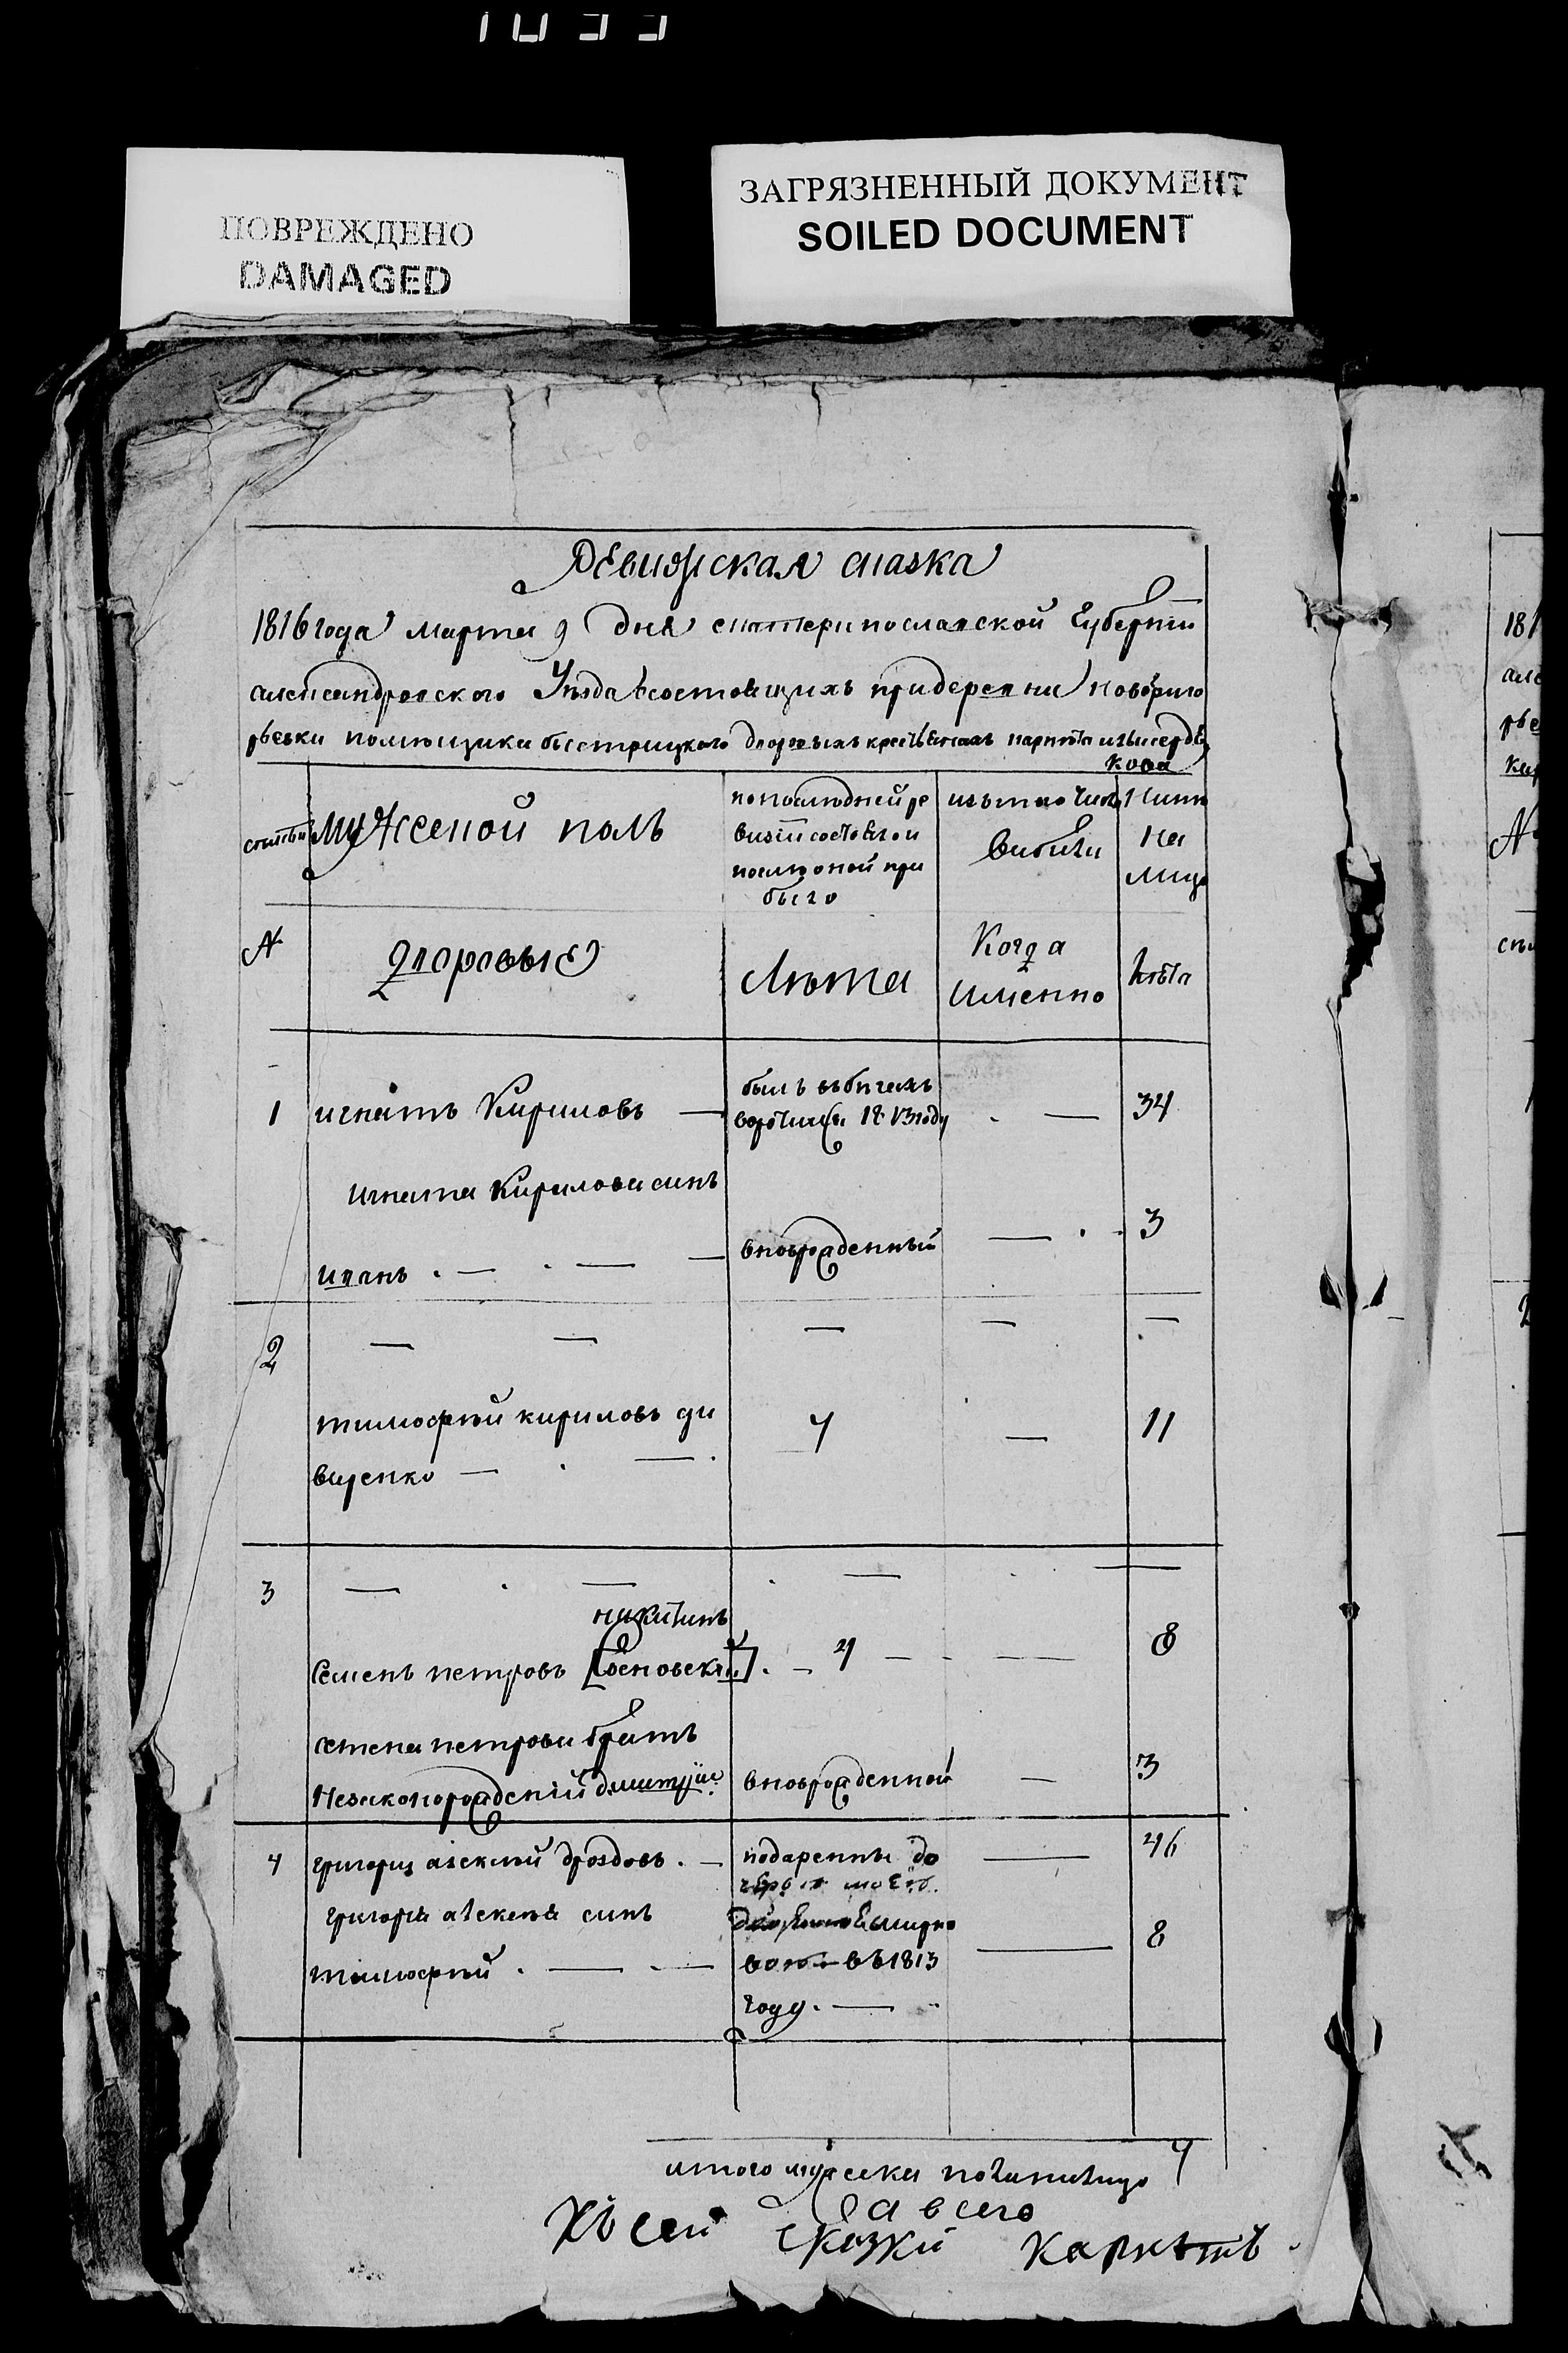 ПОВРЕЖДЕНО
DAMAGED
ЗАГРЯЗНЕННЫЙ ДОКУМЕНТ
SOILED DOCUMENT
Ревижская сказка
1816 года марта 9 дня екатеринославской Губернии
александровского Уезда состоящихъ придеревни новогриго
рьевки помещика быстрицкого дворовыхъ крестьянахъ
мужеской полъ
по последней ре
визии состояло и
после оной при
было
изъ того числа
выбыли
Ныне
на
лицо
№
дворовые
лета
Когда
Именно
лета
1 игнатъ Кириловъ — былъ вбегахъ — 34
воротился 1813 году
игната Кирилова синъ
иванъ — вновьрожденный — 3
2 — — — — —
тимофей кириловъ ди 4 — 11
виченко —
3 — — — —
никитинъ
Семенъ петровъ [Сосновский] — 4 — — 8
семена петрова братъ
Незаконорожденій дмитрій вновьрожденной — 3
4 григорей алексеевъ дроздовъ — подаренны до — 46
григорія алексеева синъ
тимофей — въ 1813 — 8
году —
итого мужеска поланалицо 7
а всего
Къ сей сказки